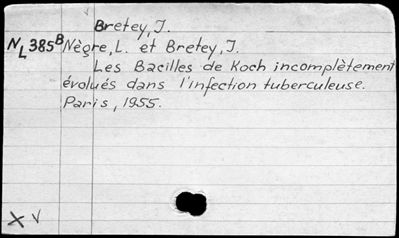 Bretey, J.
NL385B Nègre, L. et Bretey, J.
Les Bacilles de Koch incomplètement
évolués dans l'infection tuberculeuse.
Paris, 1955.
X V